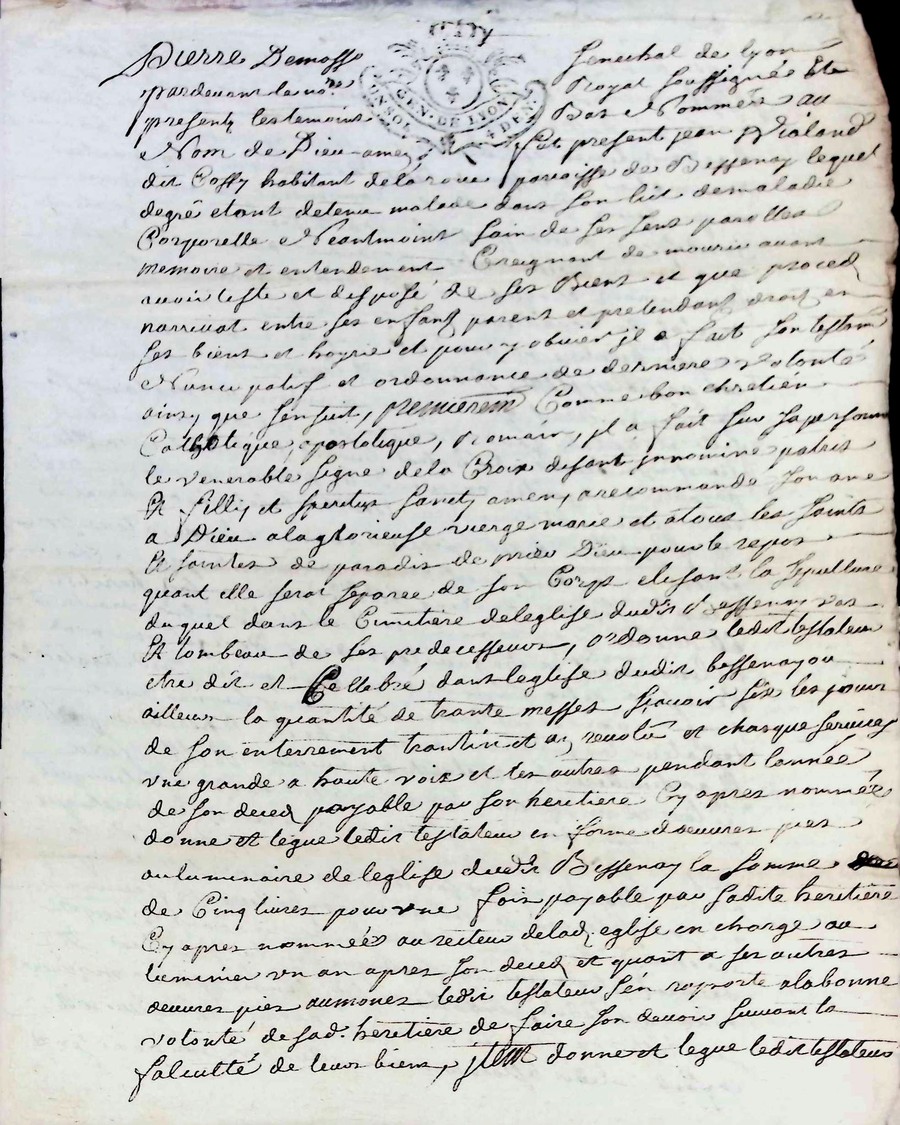 Pierre Demosse Senechal de lyon
pardevant le no.re Royal soussigné Et
presentz les temoins Bas Nommés au
Nom de Dieu amen fut present jean Vialand
dit Coffy habitant de la roue paroisse de Bessenay lequel
degré etant detenu malade dans son lict de maladie
Corporelle Neantmoint sain de ses sens parolles
memoire et entendement Creignant de mourir avant
avoir testé et disposé de ses Biens et que proced
narrivat entre ses enfans parent et pretendans droit en
ses biens et hoyrie et pour y obvier jl a fait son testam
Nuncupatif et ordonnance de derniere volonté
ainsy que sensuit, premierem Comme bon chretien
Catholique, apostolique, Romain, jl a fait sur sa personne
le venerable signe de la Croix disant jnnomine patris
Et fillij et spiritus sancty amen, a recommandé son ame
a Dieu a la glorieuse vierge marie et a tous les saints
Et saintes de paradis de prier Dieu pour le repos
quant elle serat separee de son Corps elisant la sepulture
duquel dans le Cimetiére de leglise dudit Bessenay vas
Et tombeau de ses predecesseurs, ordonne ledit testateur
etre dit et Cellebré dans leglise dudit bessenay ou
ailleurs la quantité de trante messes sçavoir six les jour
de son enterrement trantin et an revolu et chasque services
une grande a haute voix et les autres pendant lannée
de son deced payable par son heritiere Cy apres nommée
donne et legue ledit testateur en forme doeuvres pies
au luminaire de leglise dudit Bessenay la somme
de Cinq livres pour une fois payable par sadite heritiére
Cy apres nommée au recteur de lad. eglise en charge au
luminier un an apres son deced et quant a ses autres
oeuvres pies aumones ledit testateur sén raporte a la bonne
volonté de sad. heritiére de faire son devoir suivant la
faculté de leurs biens, jtem donne et legue ledit testateur